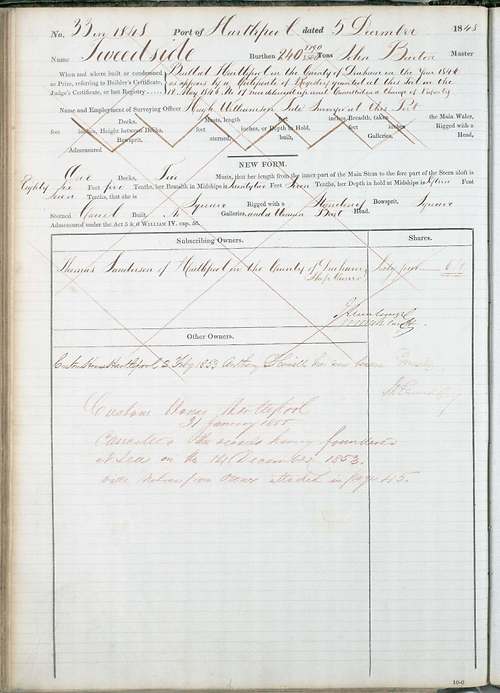 No. 33 in 1848 Port of Hartlepool dated 5 December 1848
Name Tweedside Burthen 240 Tons John Master
When and where built or condemned as Prize, referring to Builder's Certificate, Judge's Certificate, or last Registry
Built at Hartlepool in the County of Durham in the Year 1846
as appears by a Certificate of Registry granted at this Port on the
18 May 1846 No 17 now delivered up and Cancelled a Change of Property
Name and Employment of Surveying Officer Hugh Williamson Tide Surveyor at this Port
Decks, Masts, length feet inches Breadth, taken the Main Wales,
feet inches, Height between Decks, feet inches, or Depth in Hold, feet inches Rigged with a
Bowsprit, sterned, built, Galleries, Head.
Admeasured
NEW FORM.
One Decks, Two Masts, that her length from the inner part of the Main Stem to the fore part of the Stern aloft is
Eighty six Feet five Tenths, her Breadth in Midships is twenty two Feet seven Tenths, her Depth in hold at Midships is Feet
seven Tenths, that she is Square Rigged with a Standing Bowsprit, Square
Sterned Carvel Built No Galleries, and a Woman Bust Head.
Admeasured under the Act 5 & 6 WILLIAM IV. cap. 56.
Subscribing Owners. Shares.
Thomas Sanderson of Hartlepool in the County of Durham Sixty four 64
Ship Owner
Other Owners.
Custom House Hartlepool, 2 Feby 1853 Anthony
Custom House Hartlepool
31 January 1855
Cancelled the vessel having foundered
at Sea on the 14 December 1853.
vide notice from Owner attached in page 45.
10-0